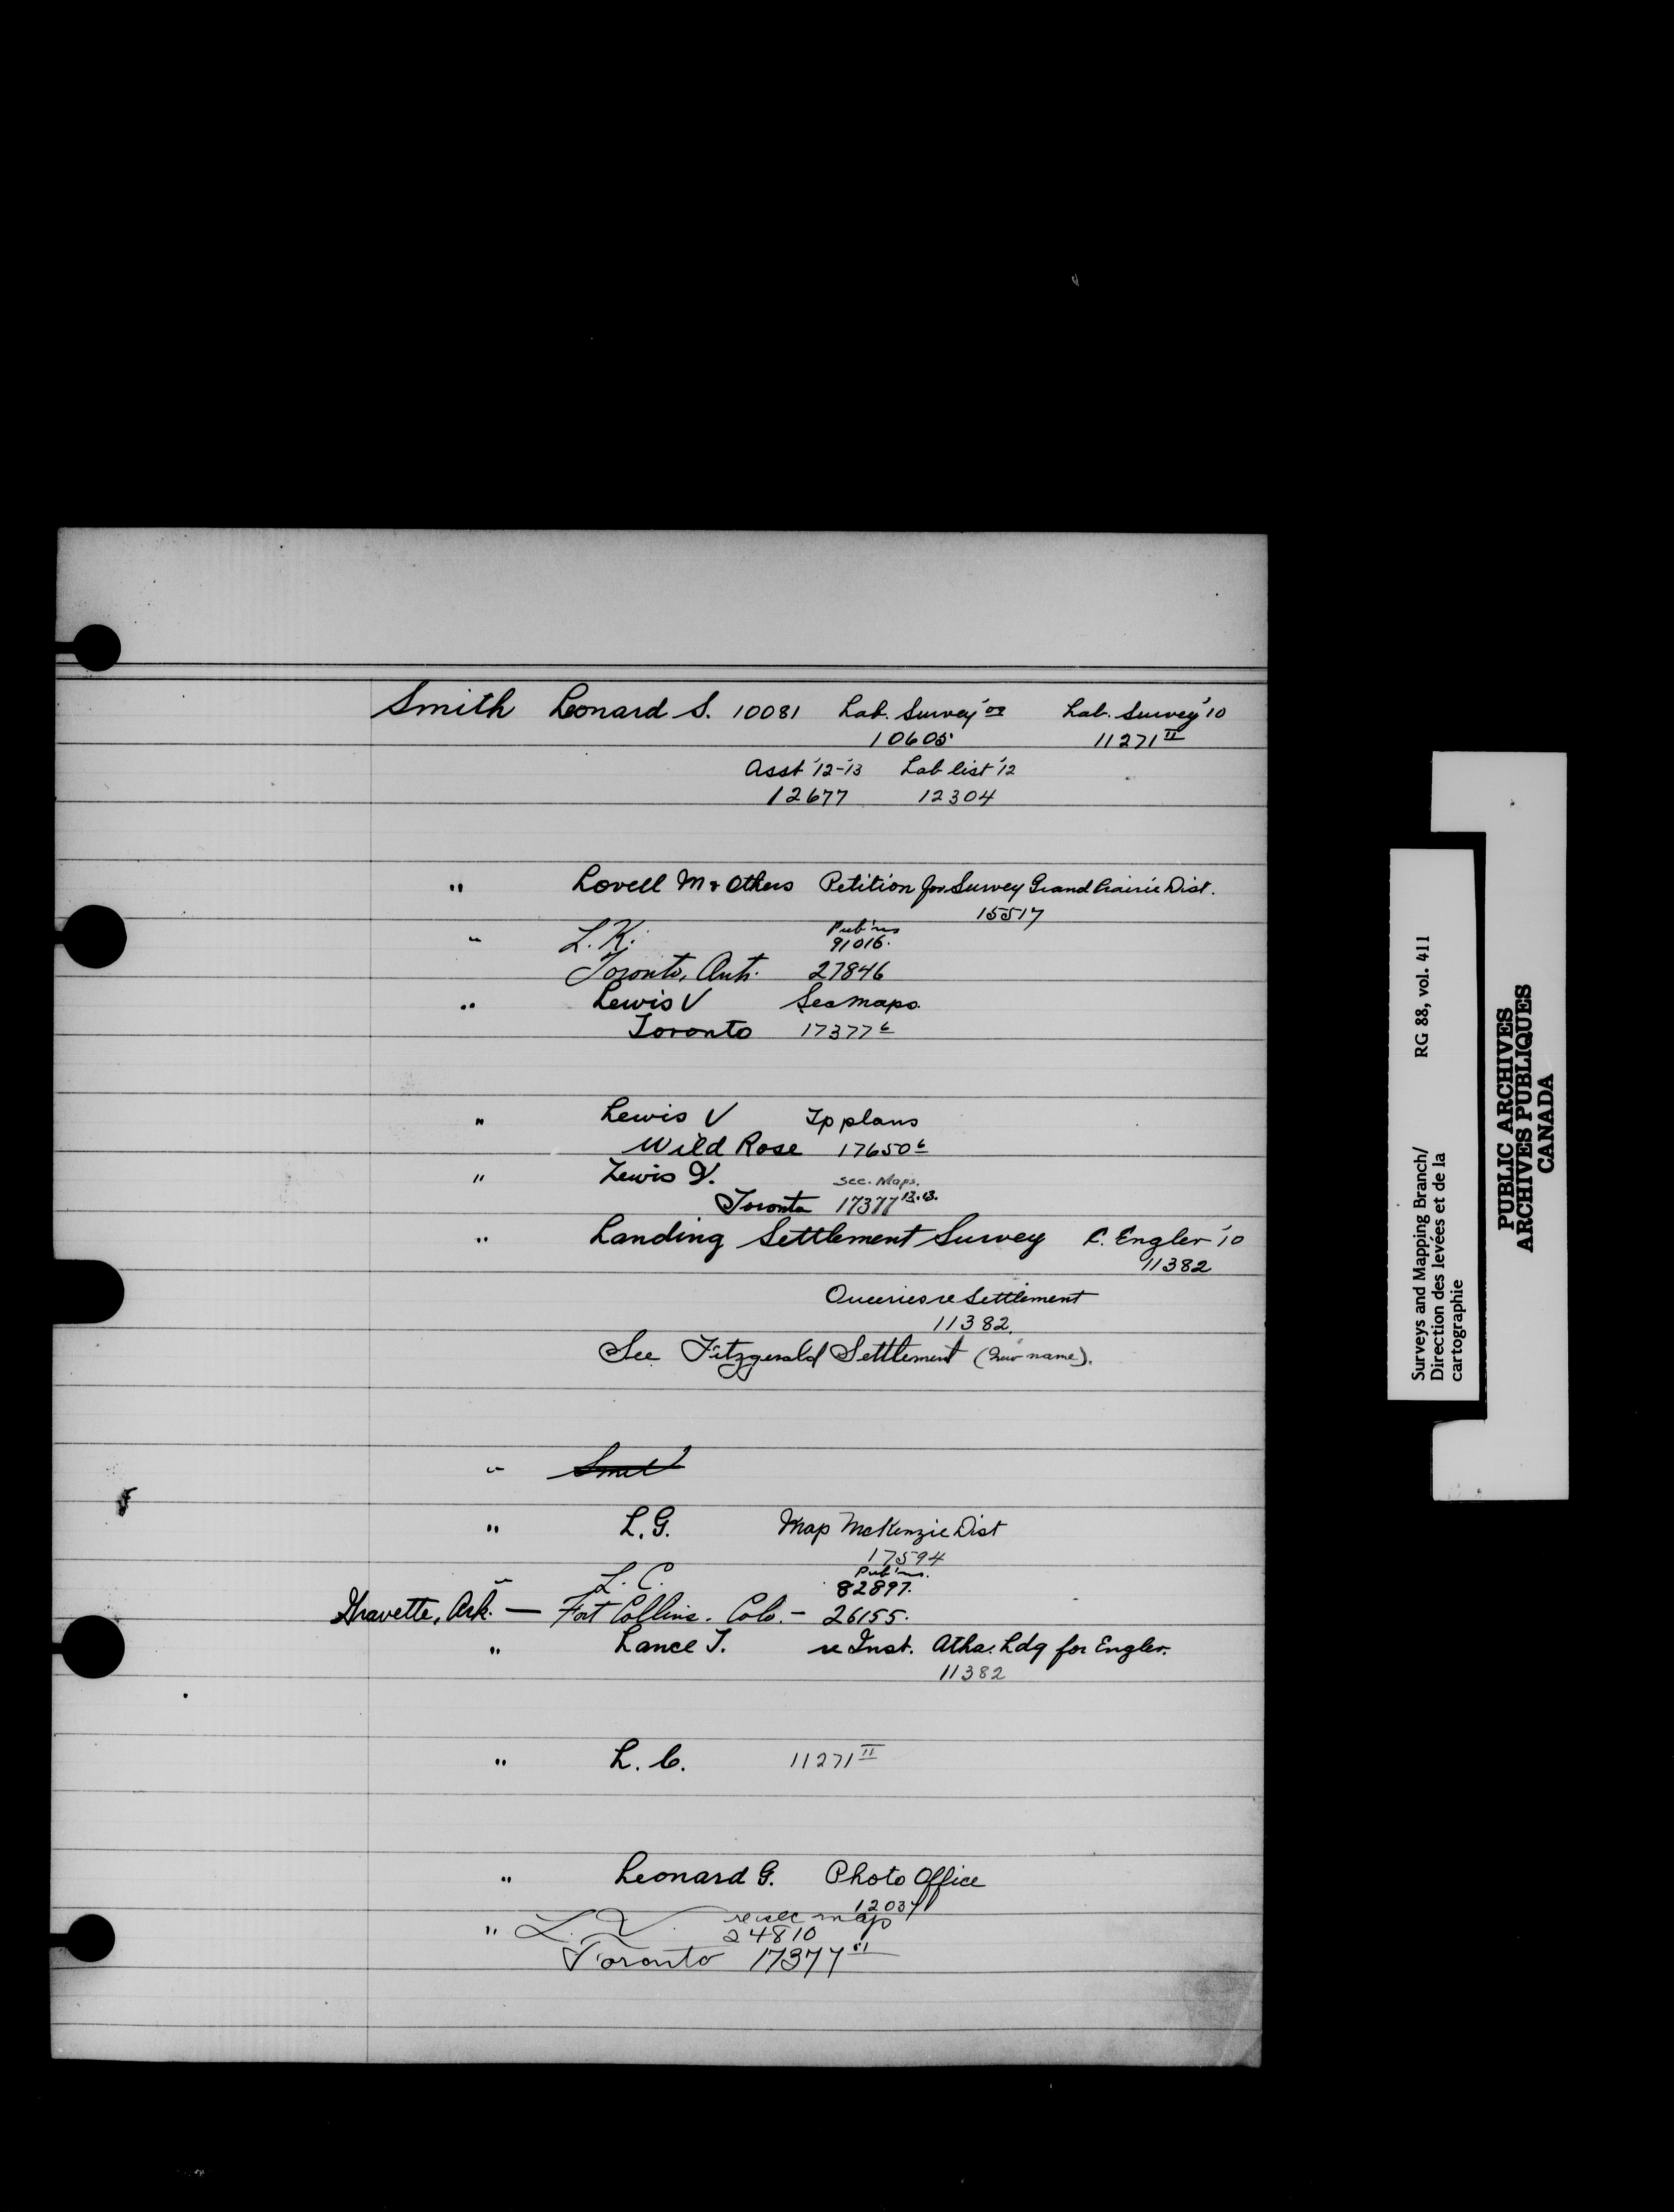 Smith Leonard S. 10081 Lab. Survey '09 Lab. Survey '10
10605 11271 II
Asst '12-'13 Lab list '12
12677 12304
" Lovell M & Others Petition for Survey Grand Prairie Dist.
15517
" L. K. Pub'ns
91016.
Toronto, Ont. 27846
" Lewis V Sec maps.
Toronto 17377 6
" Lewis V Tp plans
Wild Rose 17650 6
" Lewis V. Sec. Maps.
Toronto 17377 13.13.
" Landing Settlement Survey C. Engler '10
11382
Queeries re Settlement
11382.
See Fitzgerald Settlement (New name).
"
" L. G. Map McKenzie Dist
17594
" L. C. Pub'ns.
82897.
Gravette, Ark. — Fort Collins. Colo. - 26155.
" Lance T. re Inst. Atha. Ldg for Engler.
11382
" L. C. 11271 II
" Leonard G. Photo Office
12034
" L. V. re sec map
24810
Toronto 17377
Surveys and Mapping Branch/ RG 88, vol. 411
Direction des levées et de la
cartographie
PUBLIC ARCHIVES
ARCHIVES PUBLIQUES
CANADA